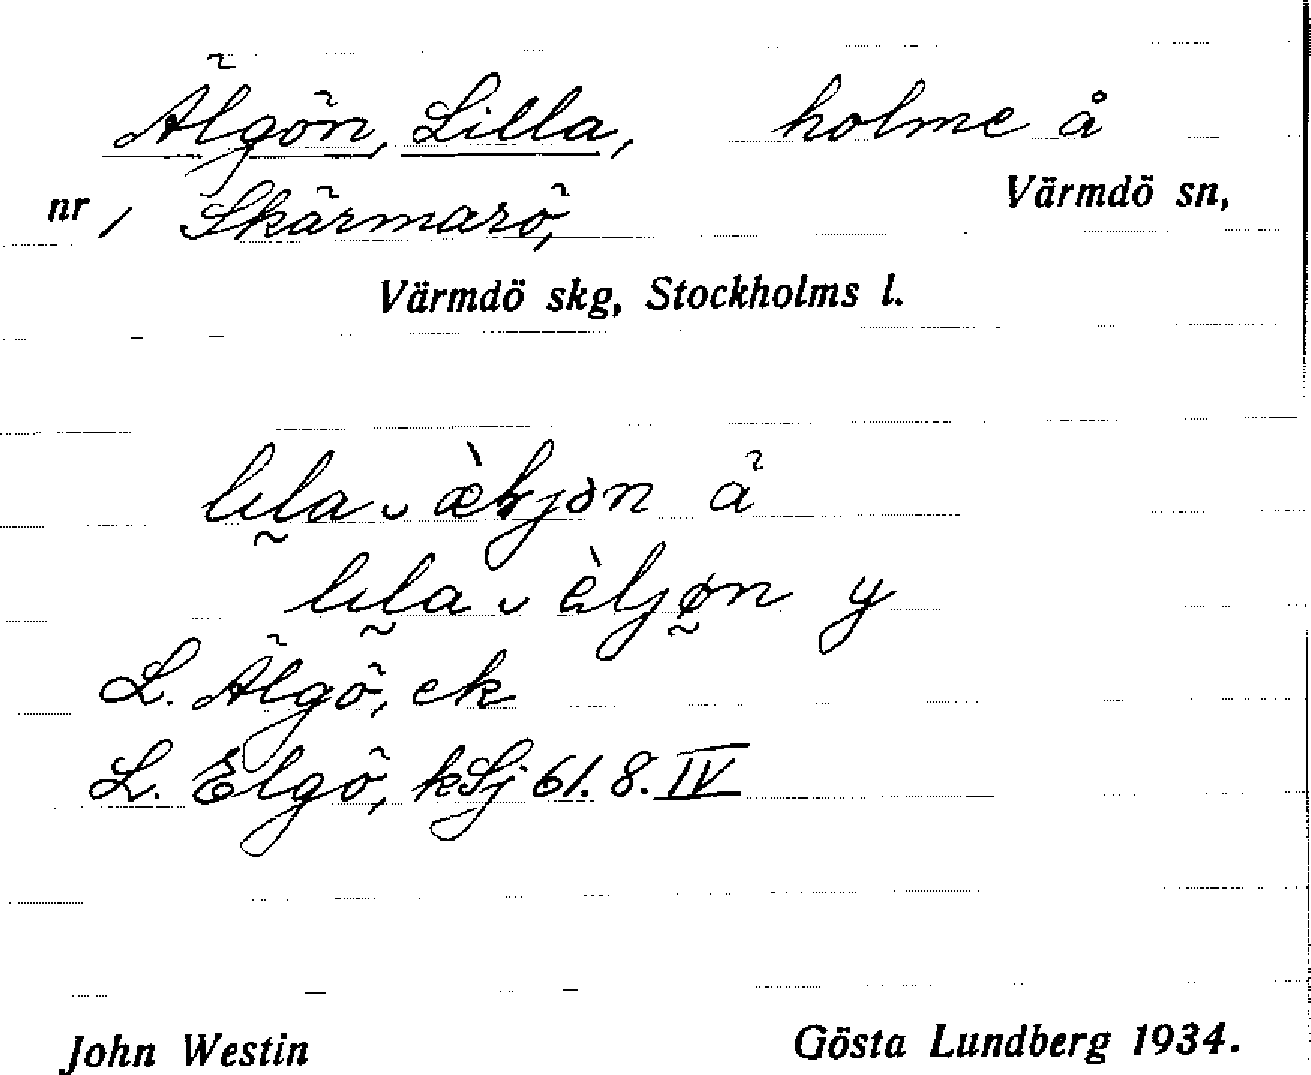 Älgön, Lilla, holme å
nr 1 Skärmarö, Värmdö sn,
Värmdö skg, Stockholms l.
ä
y
L. Älgö, ek
L. Elgö, kSj 61.8.IV
John Westin Gösta Lundberg 1934.